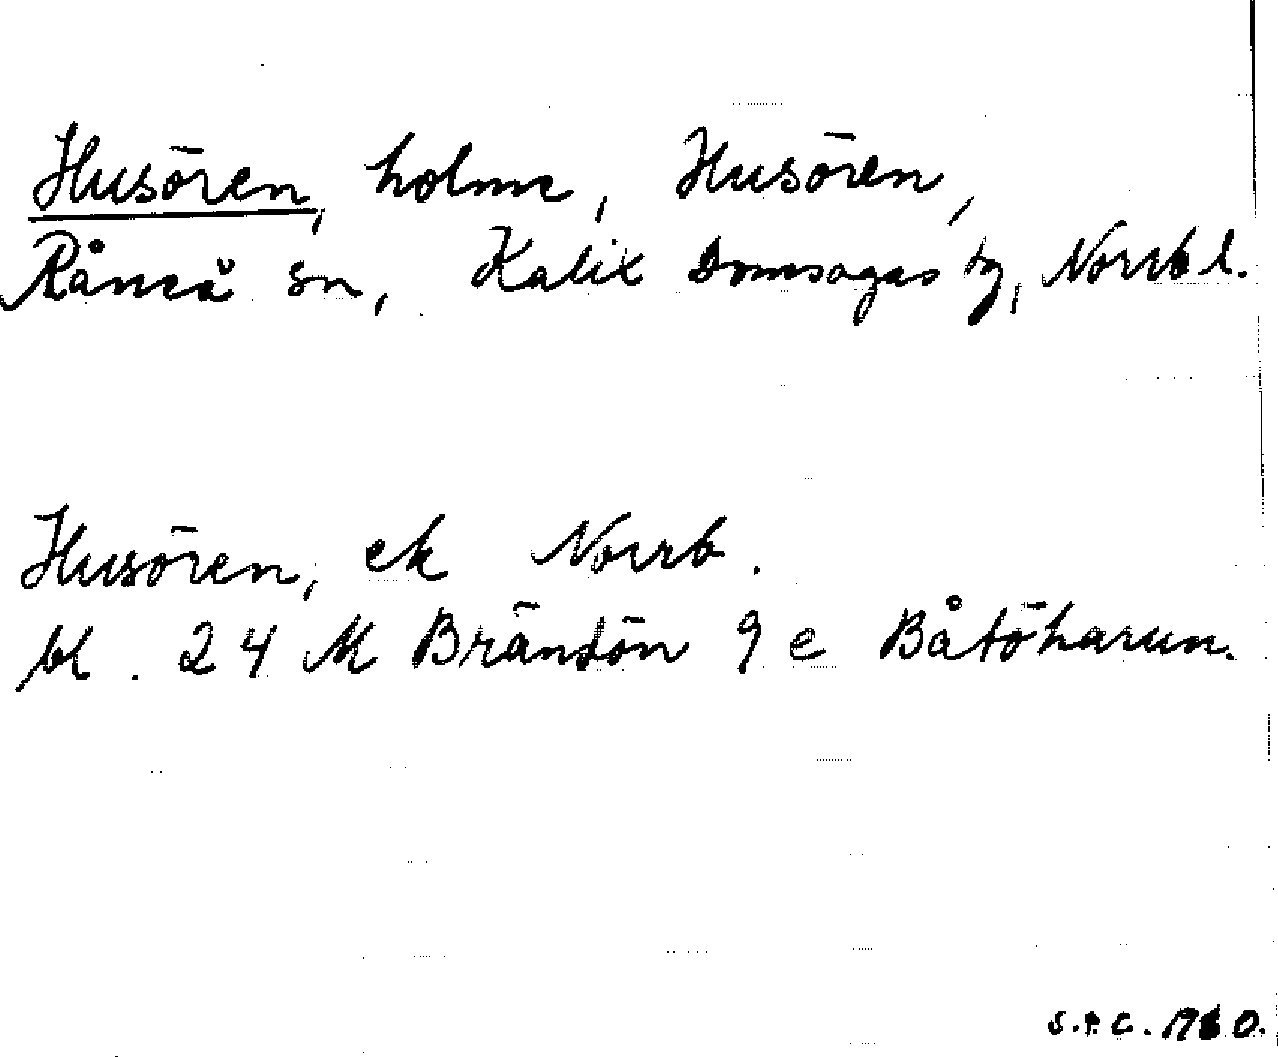 Husören, holme, Husören,
Råneå sn, Kalix Domsagas tg, Norrb l.
Husören, ek Norrb.
bl. 24 M Brändön 9 e Båtöharun.
S.P.C. 1980.